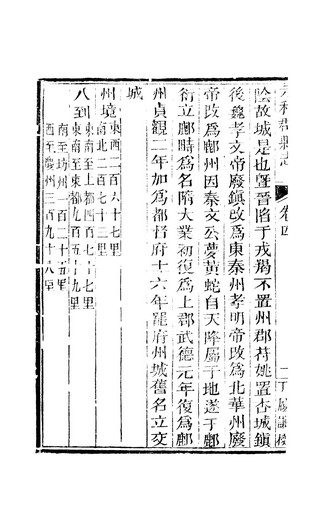 元和郡縣志 卷四
陰故城是也暨晉陷于戎羯不置州郡苻姚置杏城鎮
後魏孝文帝廢鎮改爲東秦州孝明帝改爲北華州廢
帝改爲鄜州因秦文公夢黃蛇自天降屬于地遂于鄜
衍立鄜畤爲名隋大業初復爲上郡武德元年復爲鄜
州貞觀二年加爲都督府十六年罷府州城舊名立交
城
州境 東西二百六十七里
南北二百七十三里
八到 東南至上都四百七十七里
東南至東都九百五十九里
南至坊州一百二十五里
西至慶州三百九十八里